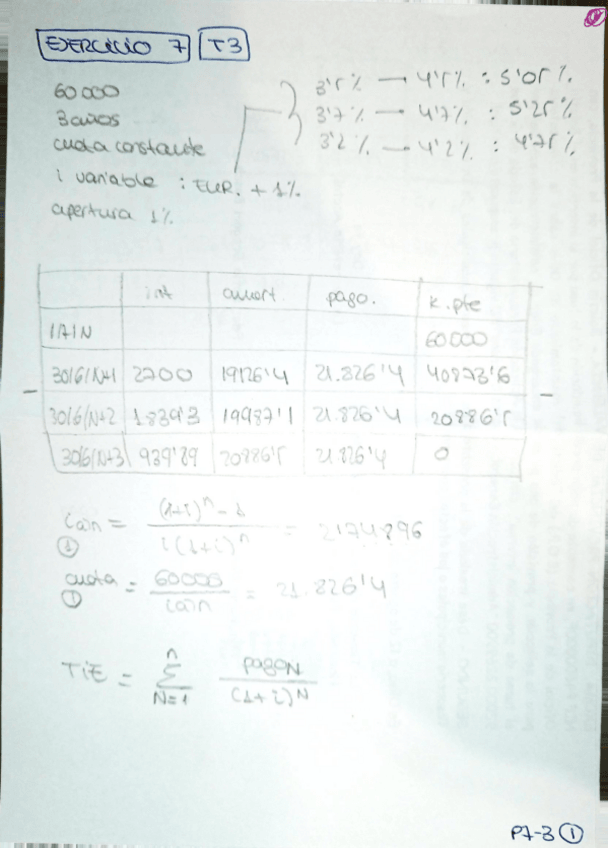 EJERCICIO 7 T3
60 000
3 años
cuota constante
i variable : EUR. + 1%
apertura 1%
3'5% — 4'5% : 5'05%
3'7% — 4'7% : 5'25%
3'2% — 4'2% : 4'75%
int amort pago. k. pte
60 000
30/6/N+1 2700 19126'4 21.826'4 40873'6
30/6/N+2 1.839'3 19987'1 21.826'4 20886'5
30/6/N+3 939'89 20886'5 21.826'4 0
(1+i)ⁿ - 1
= = 2'74896
① i (1+i)ⁿ
cuota = 60000 = 21.826'4
①
n
TIE = Σ pagoN
N=1 (1+i)N
P7-3 ①